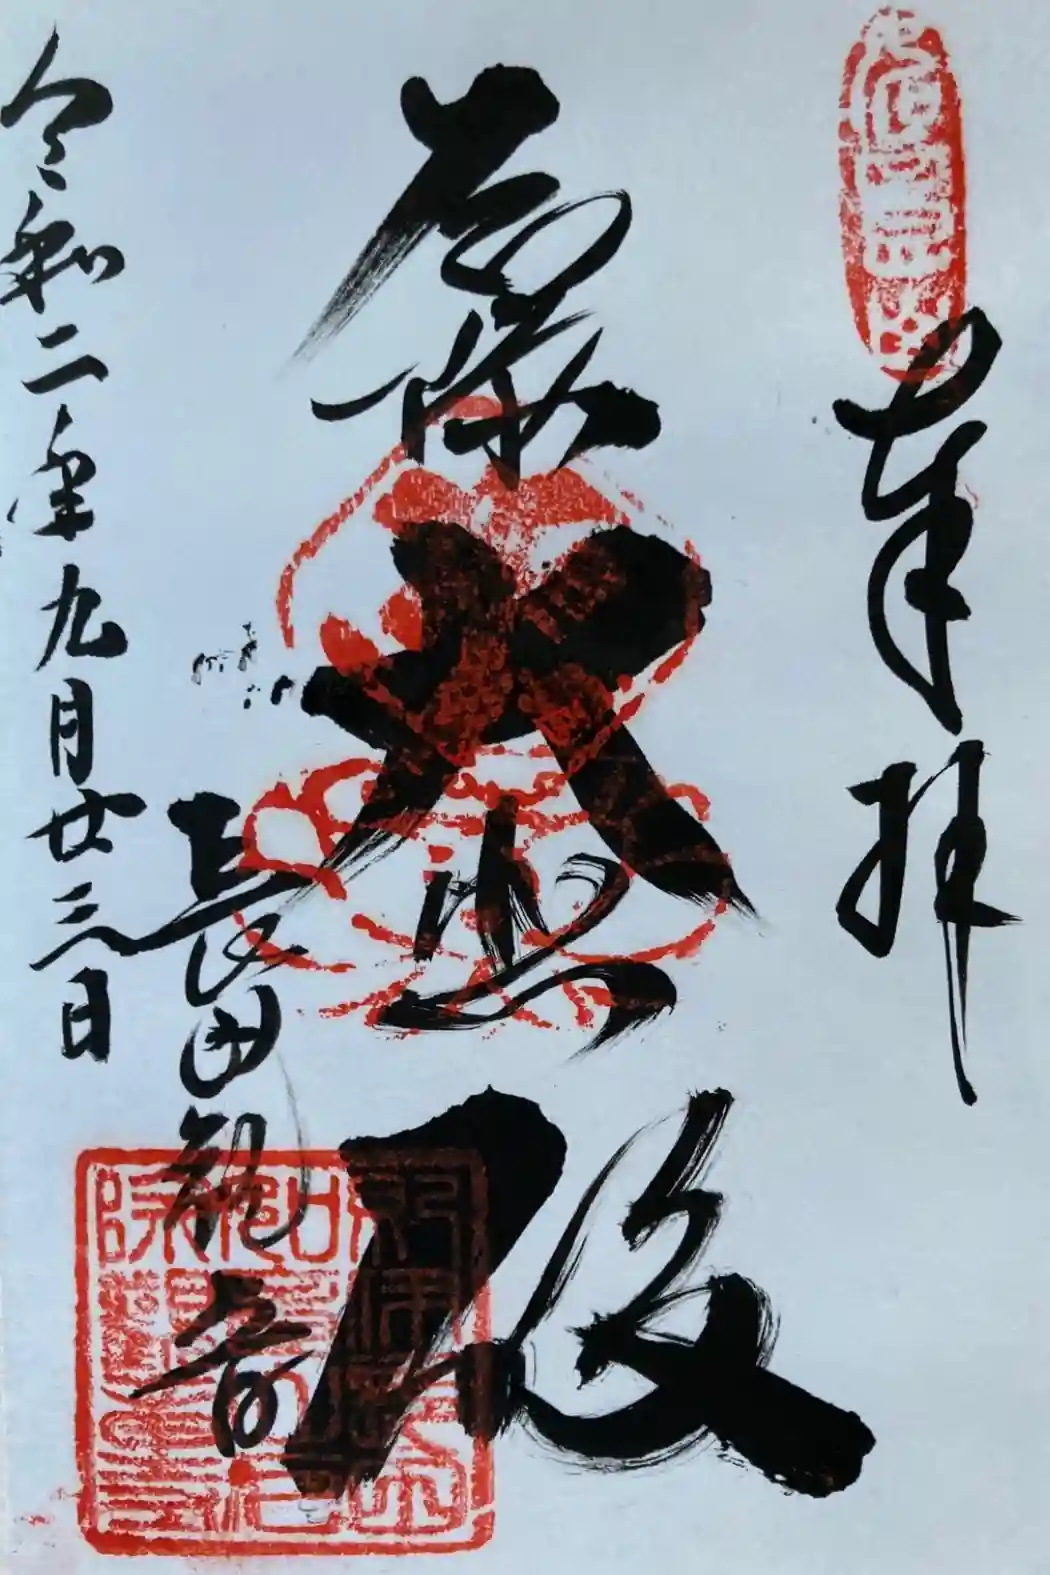 奉拝
厄除
大悲殿
長田観音
令和二年九月廿三日